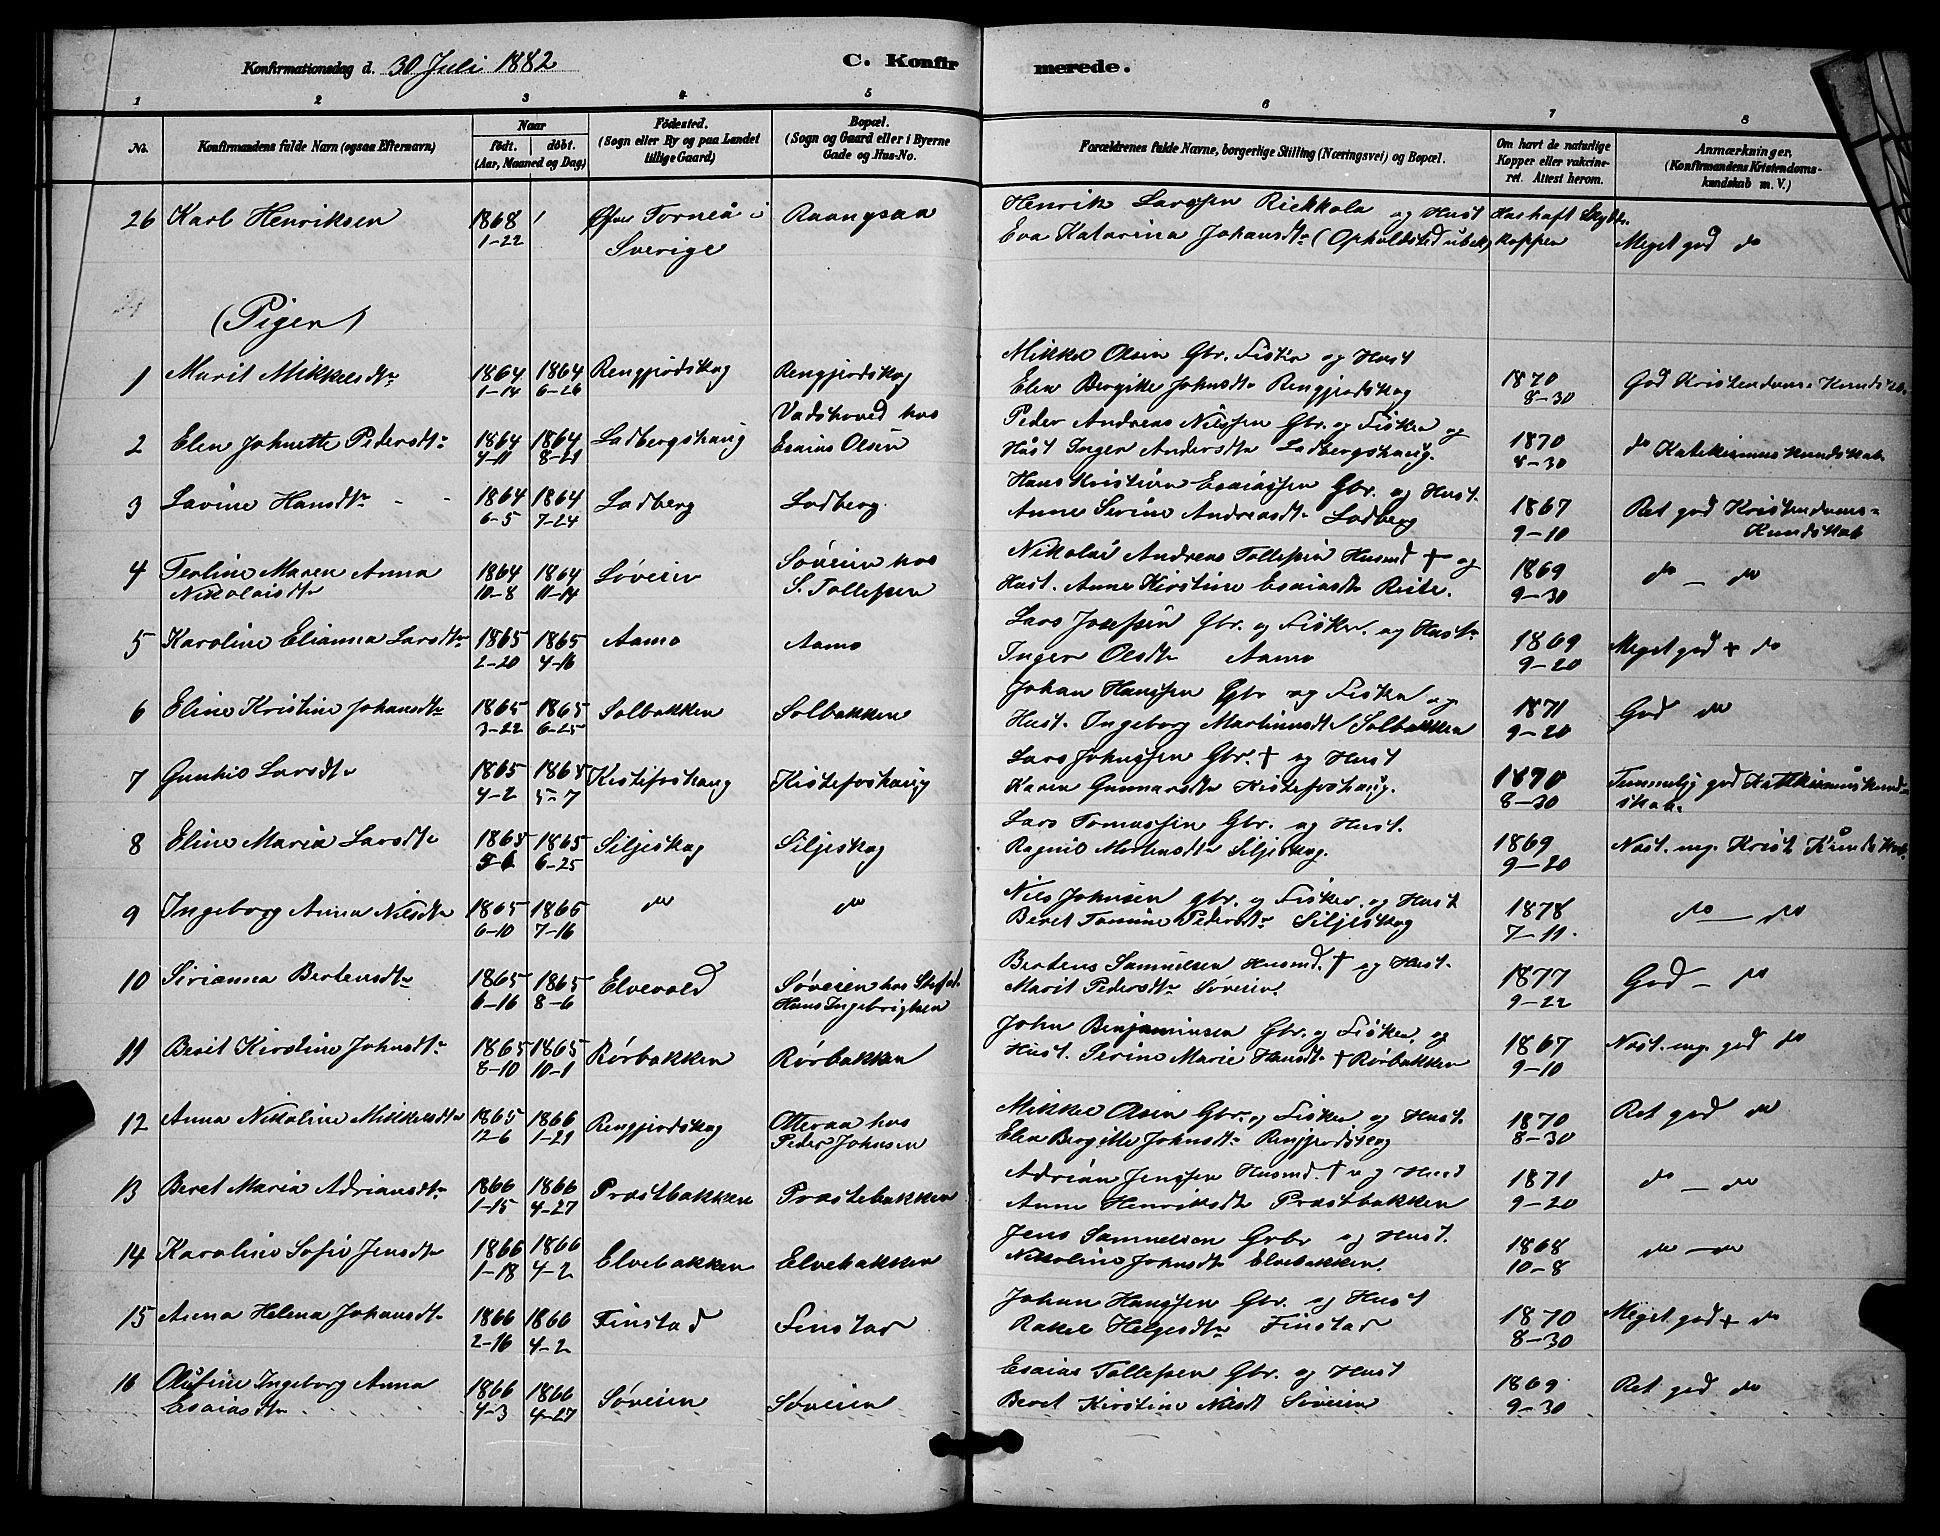 Konfirmationsdag d. 30 Juli 1882
C. Konfirmerede.
1 2 3 4 5 6 7 8
No.
Konfirmandens fulde Navn (ogsaa Efternavn).
Naar
født. døbt.
(Aar, Maaned og Dag)
Fødested.
(Sogn eller By og paa Landet
tillige Gaard)
Bopæl.
(Sogn og Gaard eller i Byerne
Gade og Hus-No.
Forældrenes fulde Navne, borgerlige Stilling (Næringsvei) og Bopæl.
Om havt de naturlige
Kopper eller vaccine-
ret. Attest herom.
Anmærkninger,
(Konfirmandens Kristendoms-
kundskab m. V.)
26 Karl Henriksen 1868 1-22 Øfre Torneå i Sverige Raangsaa
Henrik Larssen Riekkola og Hust
Eva Katarina Johansdtr (Opholdsted ubek)
Meget god do
(Piger)
1 Marit Mikkelsdtr 1864 1-14 1864 6-26 Rengjordskog Rengjordskog
Mikkel Olsen Gbr. Fisker og Hust
Elen Birgitte Johnsdtr Rengjordskog
1870 8-30
God Kristendoms Kundskab
2 Elen Johnette Pedersdtr 1864 4-11 1864 8-21 Ladbergshaug Vadshoved hos Esaias Olsen
Peder Andreas Nilssen Gbr. og Fisker og
Hust Inger Andersdtr Ladbergshaug.
1870 8-30
do Katekismus kundskab
3 Lavine Hansdtr 1864 6-5 1864 7-24 Ladberg Ladberg
Hans Kristian Esaiassen Gbr. og Hust.
Anne Serine Andreasdtr Ladberg
1867 9-10
Ret god Kristendoms-
Kundskab
4 Maren Anna
Nikolaisdtr 1864 10-8 1864 11-14 Søveien Søveien hos S. Tollefsen
Nikolai Andreas Tollefsen Husmd † og
Hust. Anne Kirstine Esaiasdtr Reite.
1869 9-30
do — do
5 Karoline Elianna Larsdtr 1865 2-20 1865 4-16 Aamo Aamo
Lars Josefsen Gbr. og Fisker. og Hustr
Inger Olsdtr Aamo
1869 9-20
Meget god + do
6 Eline Kristine Johansdtr 1865 3-22 1865 6-25 Solbakken Solbakken
Johan Hanssen Gbr og Fisker og
Hust. Ingeborg Martinusdtr Solbakken
1871 9-20
God do
7 Gunhild Larsdtr 1865 4-2 1865 5-7 Kistefoshaug Kistefoshaug
Lars Johnssen Gbr. † og Hust
Karen Gunnarsdtr Kistefoshaug.
1870 8-30
Temmelig god Katekismuskund-
skab.
8 Eline Maria Larsdtr 1865 5-6 1865 6-25 Siljeskog Siljeskog
Lars Tomassen Gbr. og Hust.
Ragnil Mortensdtr Siljeskog.
1869 9-20
Nost. mg. Krist. Kundskab.
9 Ingeborg Anna Nilsdtr 1865 6-10 1865 7-16 do do
Nils Johnsen Gbr. og Fisker. og Hust
Beret Pedersdtr Siljeskog
1878 7-11.
do — do
10 Sirianna Bertensdtr 1865 6-16 1865 8-6 Elvevold Søveien hos Hans Ingebrigtsen
Bertens Samuelsen Husmd. † og Hust.
Marit Pedersdtr Søveien.
1877 9-22
God — do
11 Berit Kirstine Johnsdtr 1865 8-10 1865 10-1 Rørbakken Rørbakken
John Benjaminsen Gbr. og Fisker, og
Hust. Serine Marie Hansdtr † Rørbakken
1867 9-10
Nost. mg. god do
12 Anna Nikoline Mikkelsdtr 1865 12-6 1866 1-21 Rengjordskog Otteraa hos Peder Johnsen
Mikkel Olsen Gbr. og Fisker og Hust.
Elen Birgitte Johnsdtr Rengjordskog
1870 8-30
Ret god do
13 Beret Maria Adriansdtr 1866 1-15 1866 4-27 Præstbakken Præstebakken
Adrian Jenssen Husmd. † og Hust
Anne Henriksdtr Præstbakken
1871 9-20
do — do
14 Karoline Sofie Jensdtr 1866 1-18 1866 4-2 Elvebakken Elvebakken
Jens Samuelsen Grbr og Hust.
Nikoline Johnsdtr Elvebakken.
1868 10-8
do — do
15 Anna Helena Johansdtr 1866 2-16 1866 4-2 Finstad Finstad
Johan Hanssen Gbr. og Hust
Rakel Helgesdtr Finstad
1870 8-30
Meget god + do
16 Olufine Ingeborg Anna
Esaiasdtr 1866 4-3 1866 4-27 Søveien Søveien
Esaias Tollefsen Gbr. og Hust
Beret Kirstine Nilsdt Søveien
1869 9-30
Ret god do